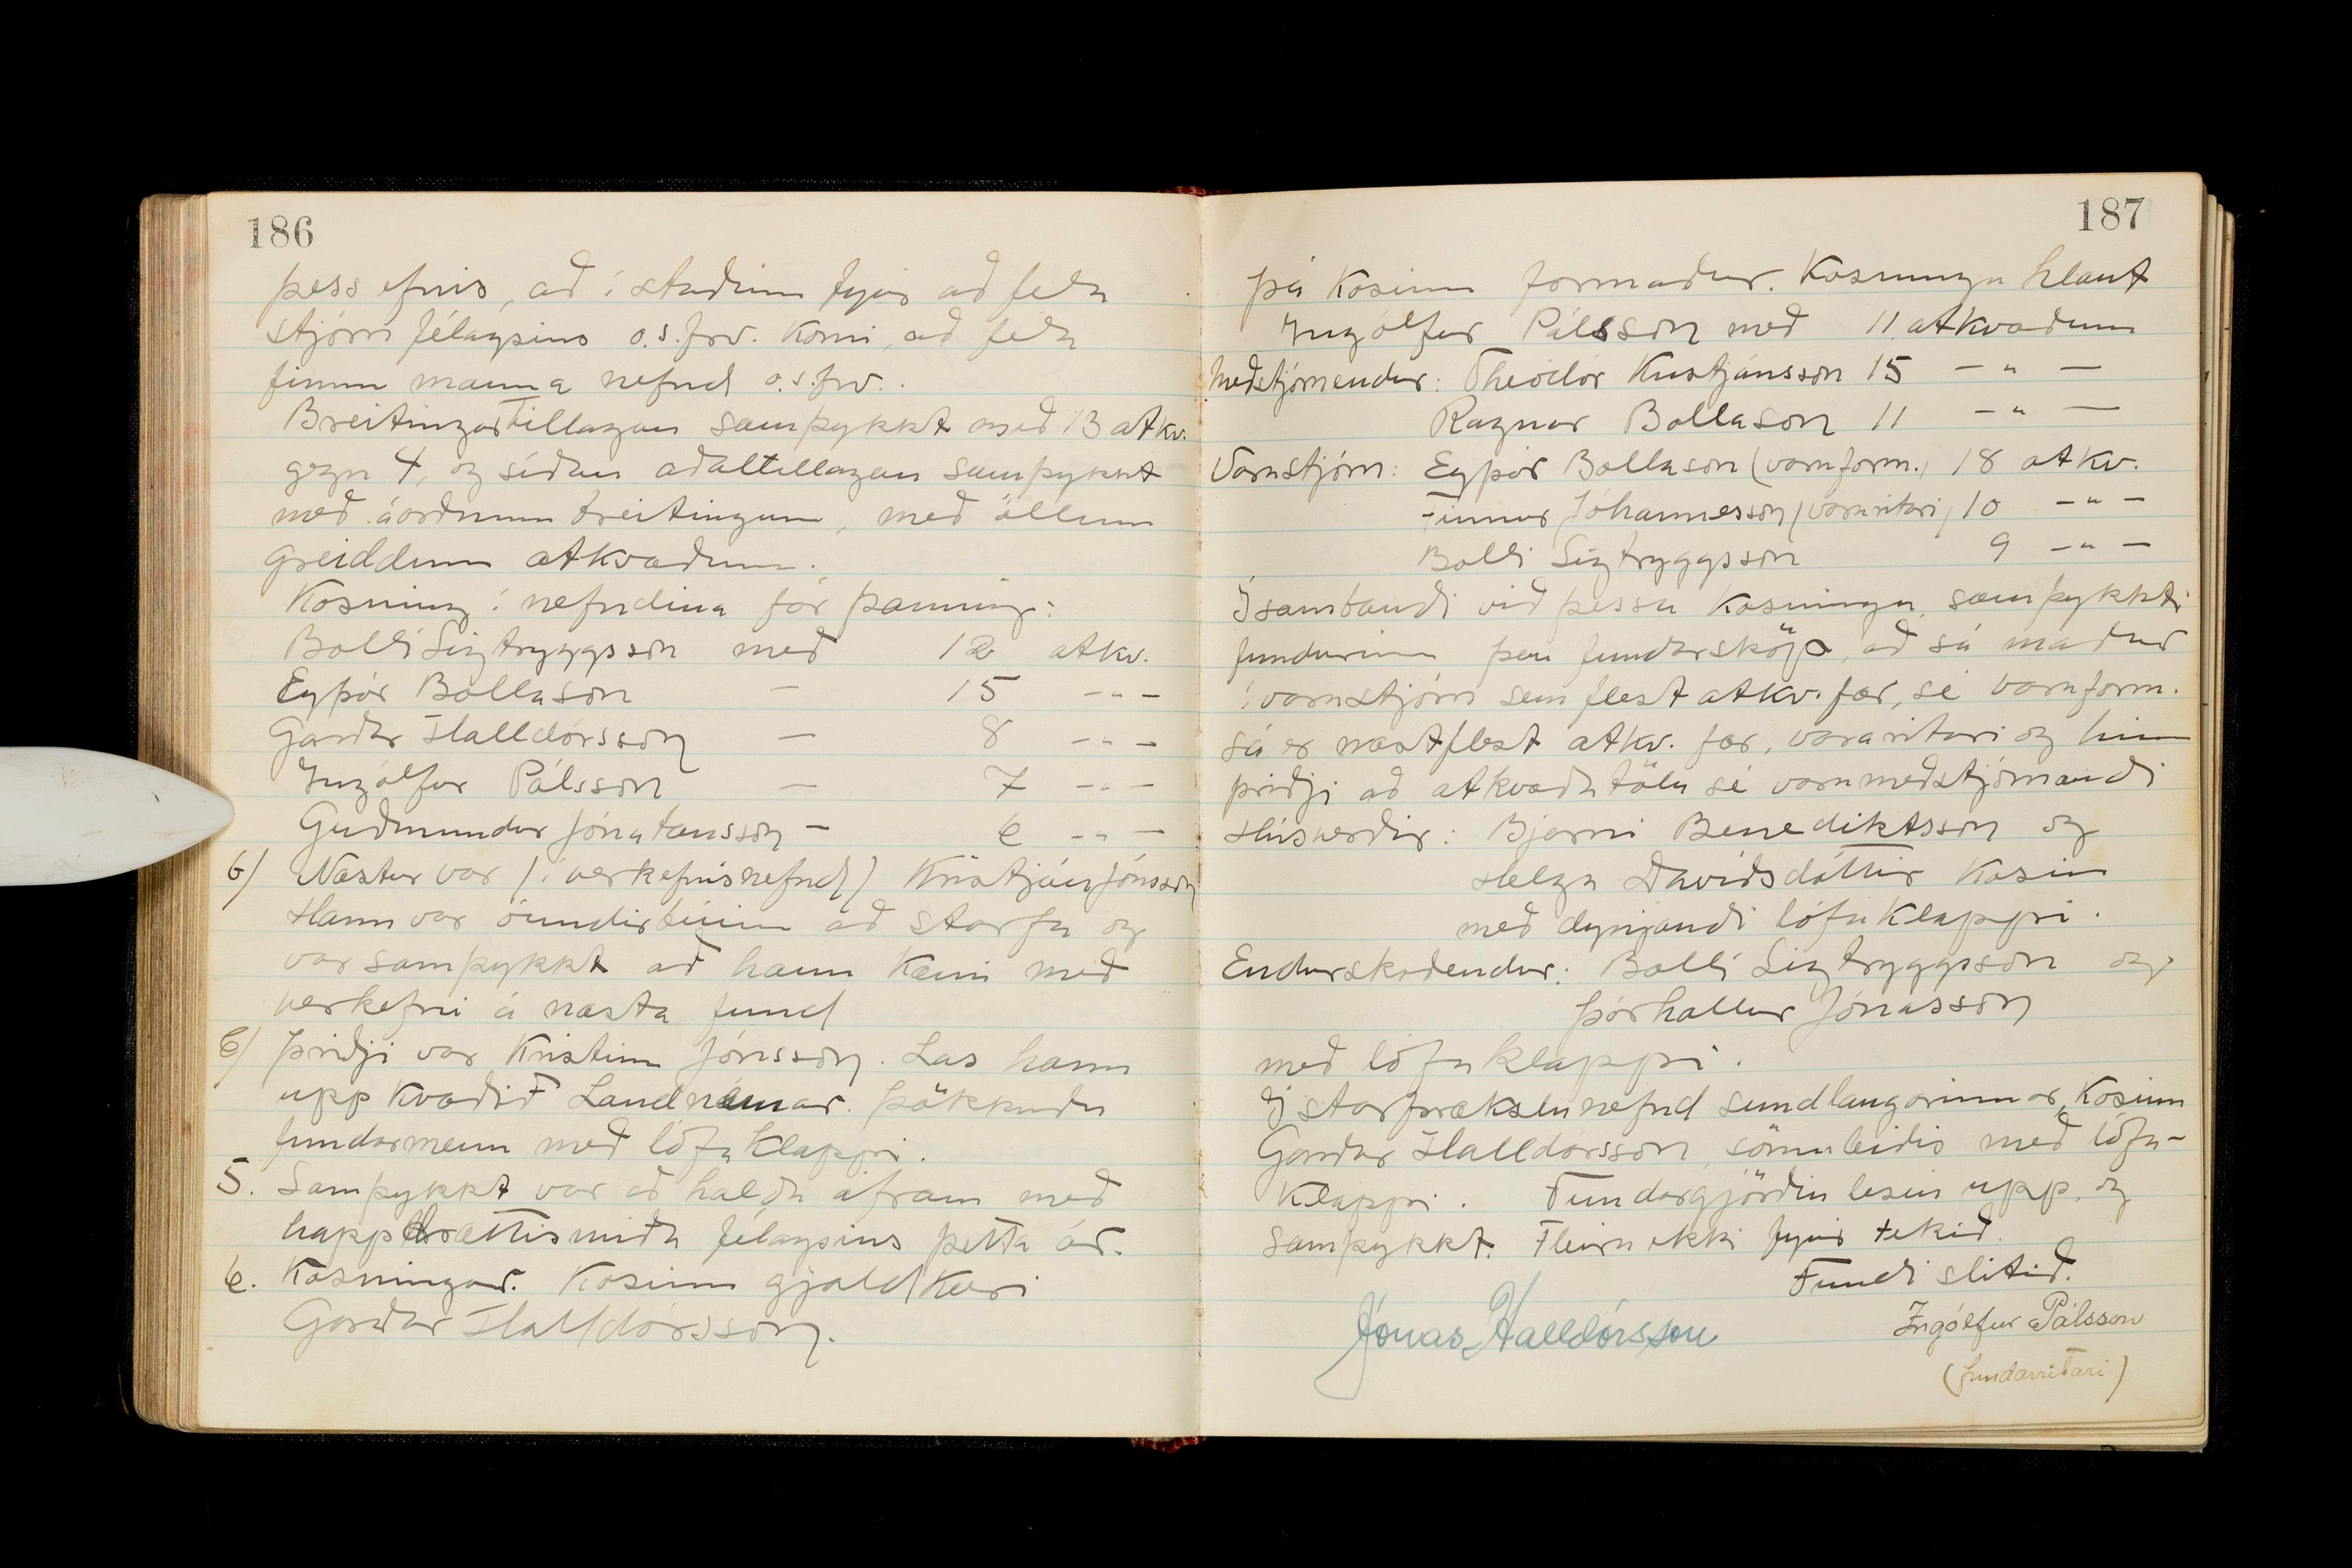 186
þess efnis, að í staðinn fyrir að fela
stjórn félagsins o.s.frv. komi, að fela
fimm manna nefnd o.s.frv..
Breitingartillagan samþykkt með 13 atkv.
gegn 4, og síðan aðaltillagan samþykkt
með áorðnum breitingum, með öllum
greiddum atkvæðum.
Kosning í nefndina fór þannig:
Bolli Sigtryggsson með 12 atkv.
Eyþór Bollason — 15 -"-
Garðar Halldórsson — 8 -"-
Ingólfur Pálsson — 7 -"-
Guðmundur Jónatansson - 6 -"-
b) Næstur var (í verkefnisnefnd) Kristján Jónsson
Hann var óundirbúinn að starfa og
var samþykkt að hann kæmi með
verkefni á næsta fund
c) Þriðji var Kristinn Jónsson. Las hann
upp kvæðið Landnámar. Þökkuðu
fundarmenn með lófaklappi.
5. Samþykkt var að halda áfram með
happdrættismiða félagsins þetta ár.
6. Kosningar. Kosinn gjaldkeri
Garðar Halldórsson.
187
þá kosinn formaður. Kosningu hlaut
Ingólfur Pálsson með 11 atkvæðum
Meðstjórnendur: Theódór Kristjánsson 15 — " —
Ragnar Bollason 11 — " —
Varastjórn: Eyþór Bollason (varaform.) 18 atkv.
Finnur Jóhannesson (vararitari) 10 -"-
Bolli Sigtryggsson 9 -"-
Í sambandi við þessa kosningu, samþykkti
fundurinn þau fundarsköp, að sá maður
í varastjórn sem flest atkv. fær, sé varaform.
sá er næstflest atkv. fær, vararitari og hinn
þriðji að atkvæðatölu sé varameðstjórnandi
Húsverðir: Bjarni Benediktsson og
Helga Davíðsdóttir kosin
með dynjandi lófaklappi.
Endurskoðendur: Bolli Sigtryggsson og
Þórhallur Jónasson
með lófaklappi.
Í starfrækslunefnd sundlaugarinnar, kosinn
Garðar Halldórsson, sömuleiðis með lófa-
klappi. Fundargjörðin lesin upp, og
samþykkt. Fleira ekki fyrir tekið.
Fundi slitið.
Jónas Halldórsson
Ingólfur Pálsson
(fundarritari)